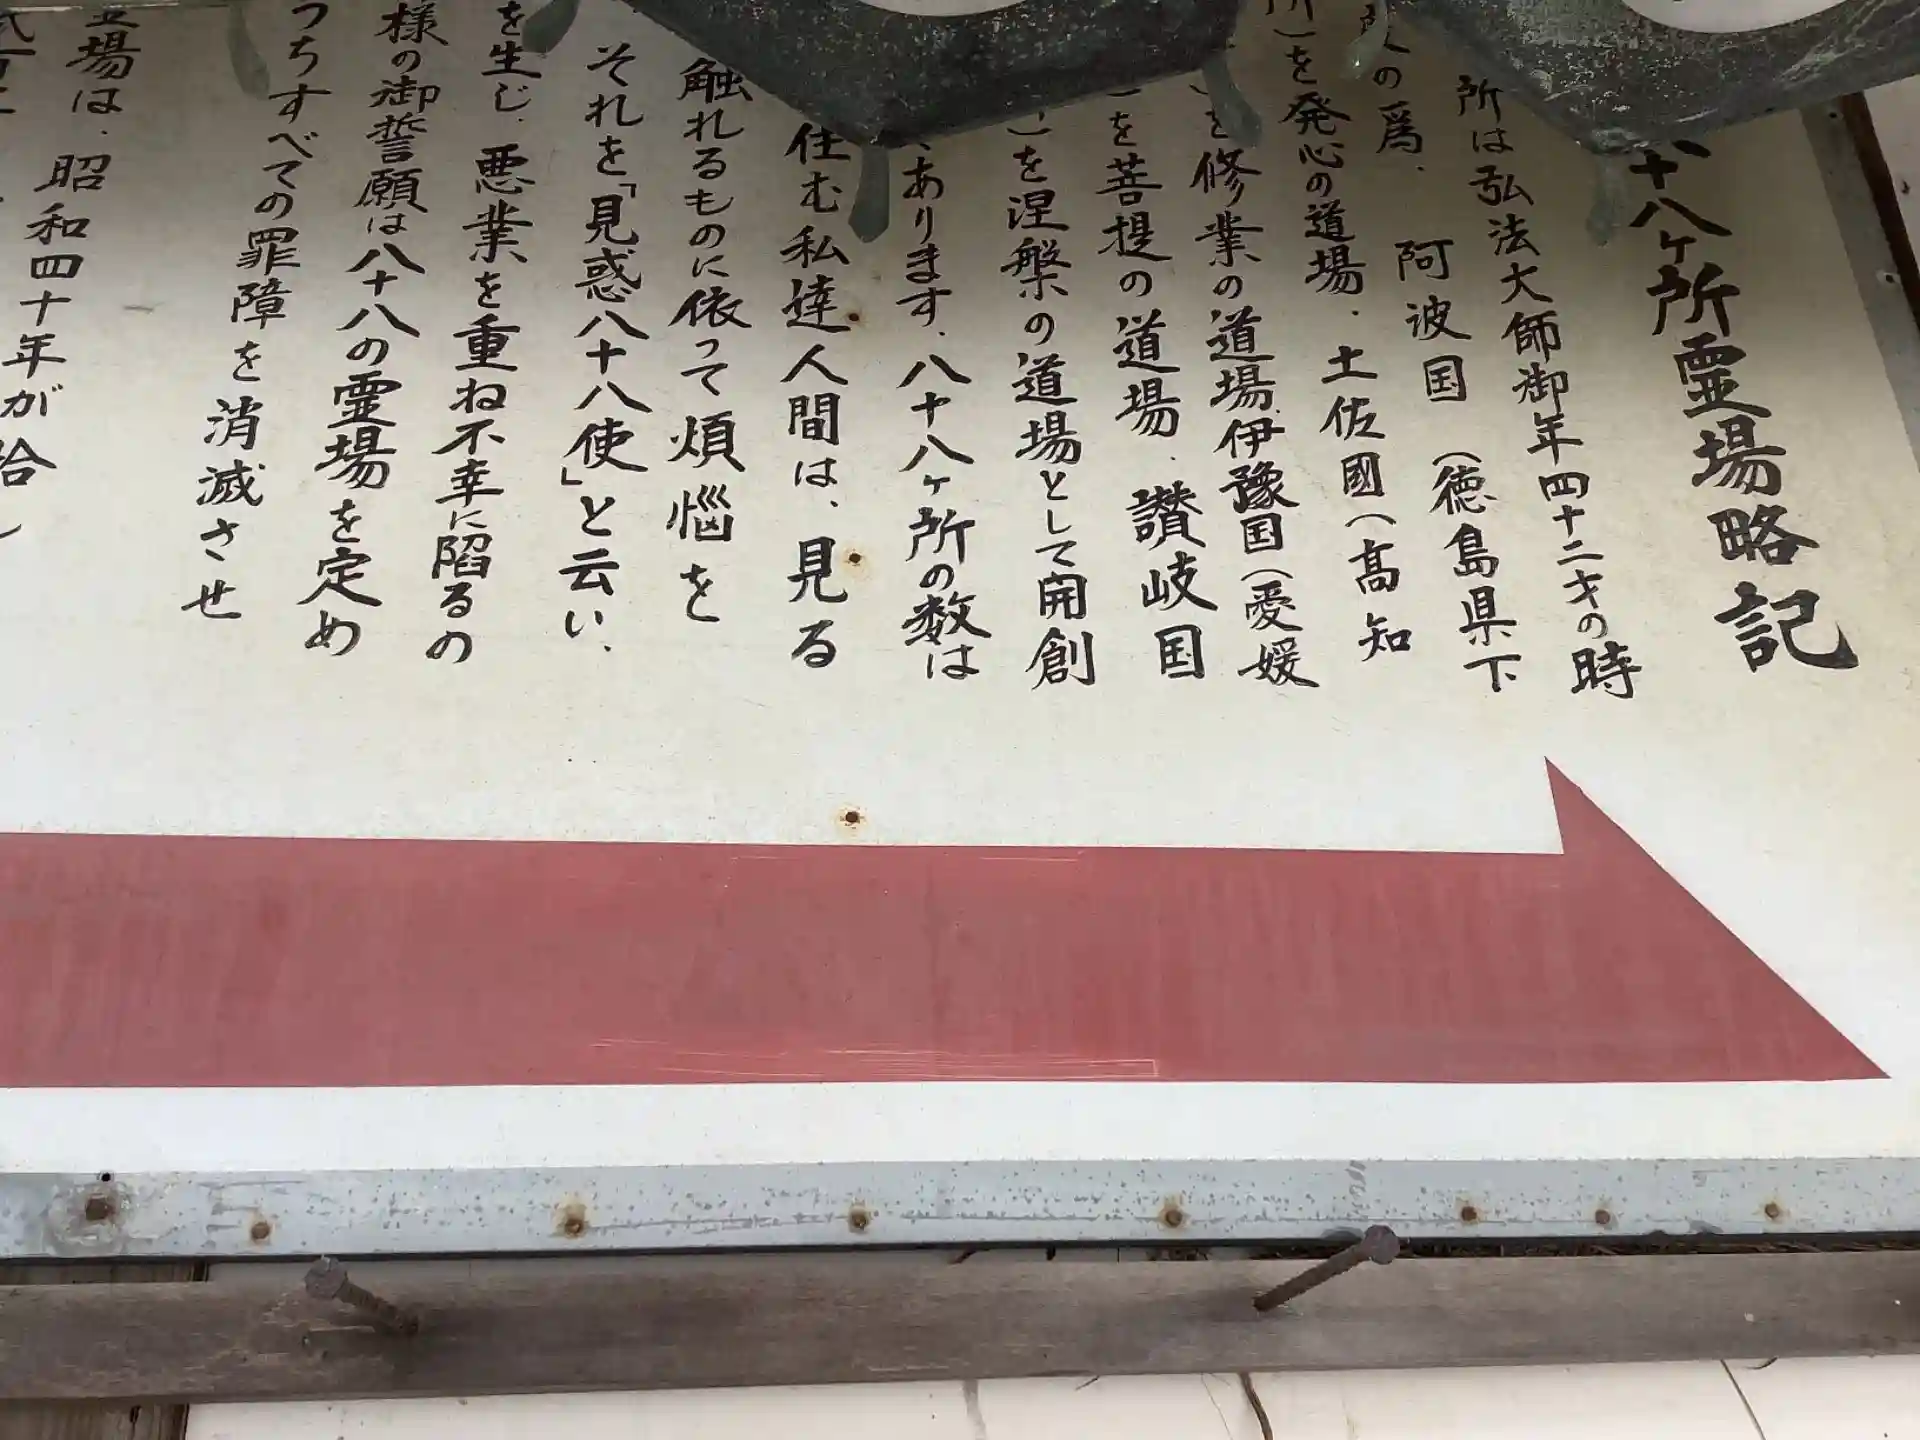 十八ヶ所霊場略記
所は弘法大師御年四十二才の時
の爲、阿波国(徳島県下
所)を発心の道場、土佐國(高知
を修業の道場、伊豫国(愛媛
)を菩提の道場、讃岐国
)を涅槃の道場として開創
あります、八十八ヶ所の数は
住む私達人間は、見る
触れるものに依って煩悩を
それを「見惑八十八使」と云い、
を生じ、悪業を重ね不幸に陥るの
様の御誓願は八十八の霊場を定め
うちすべての罪障を消滅させ
場は、昭和四十年が拾